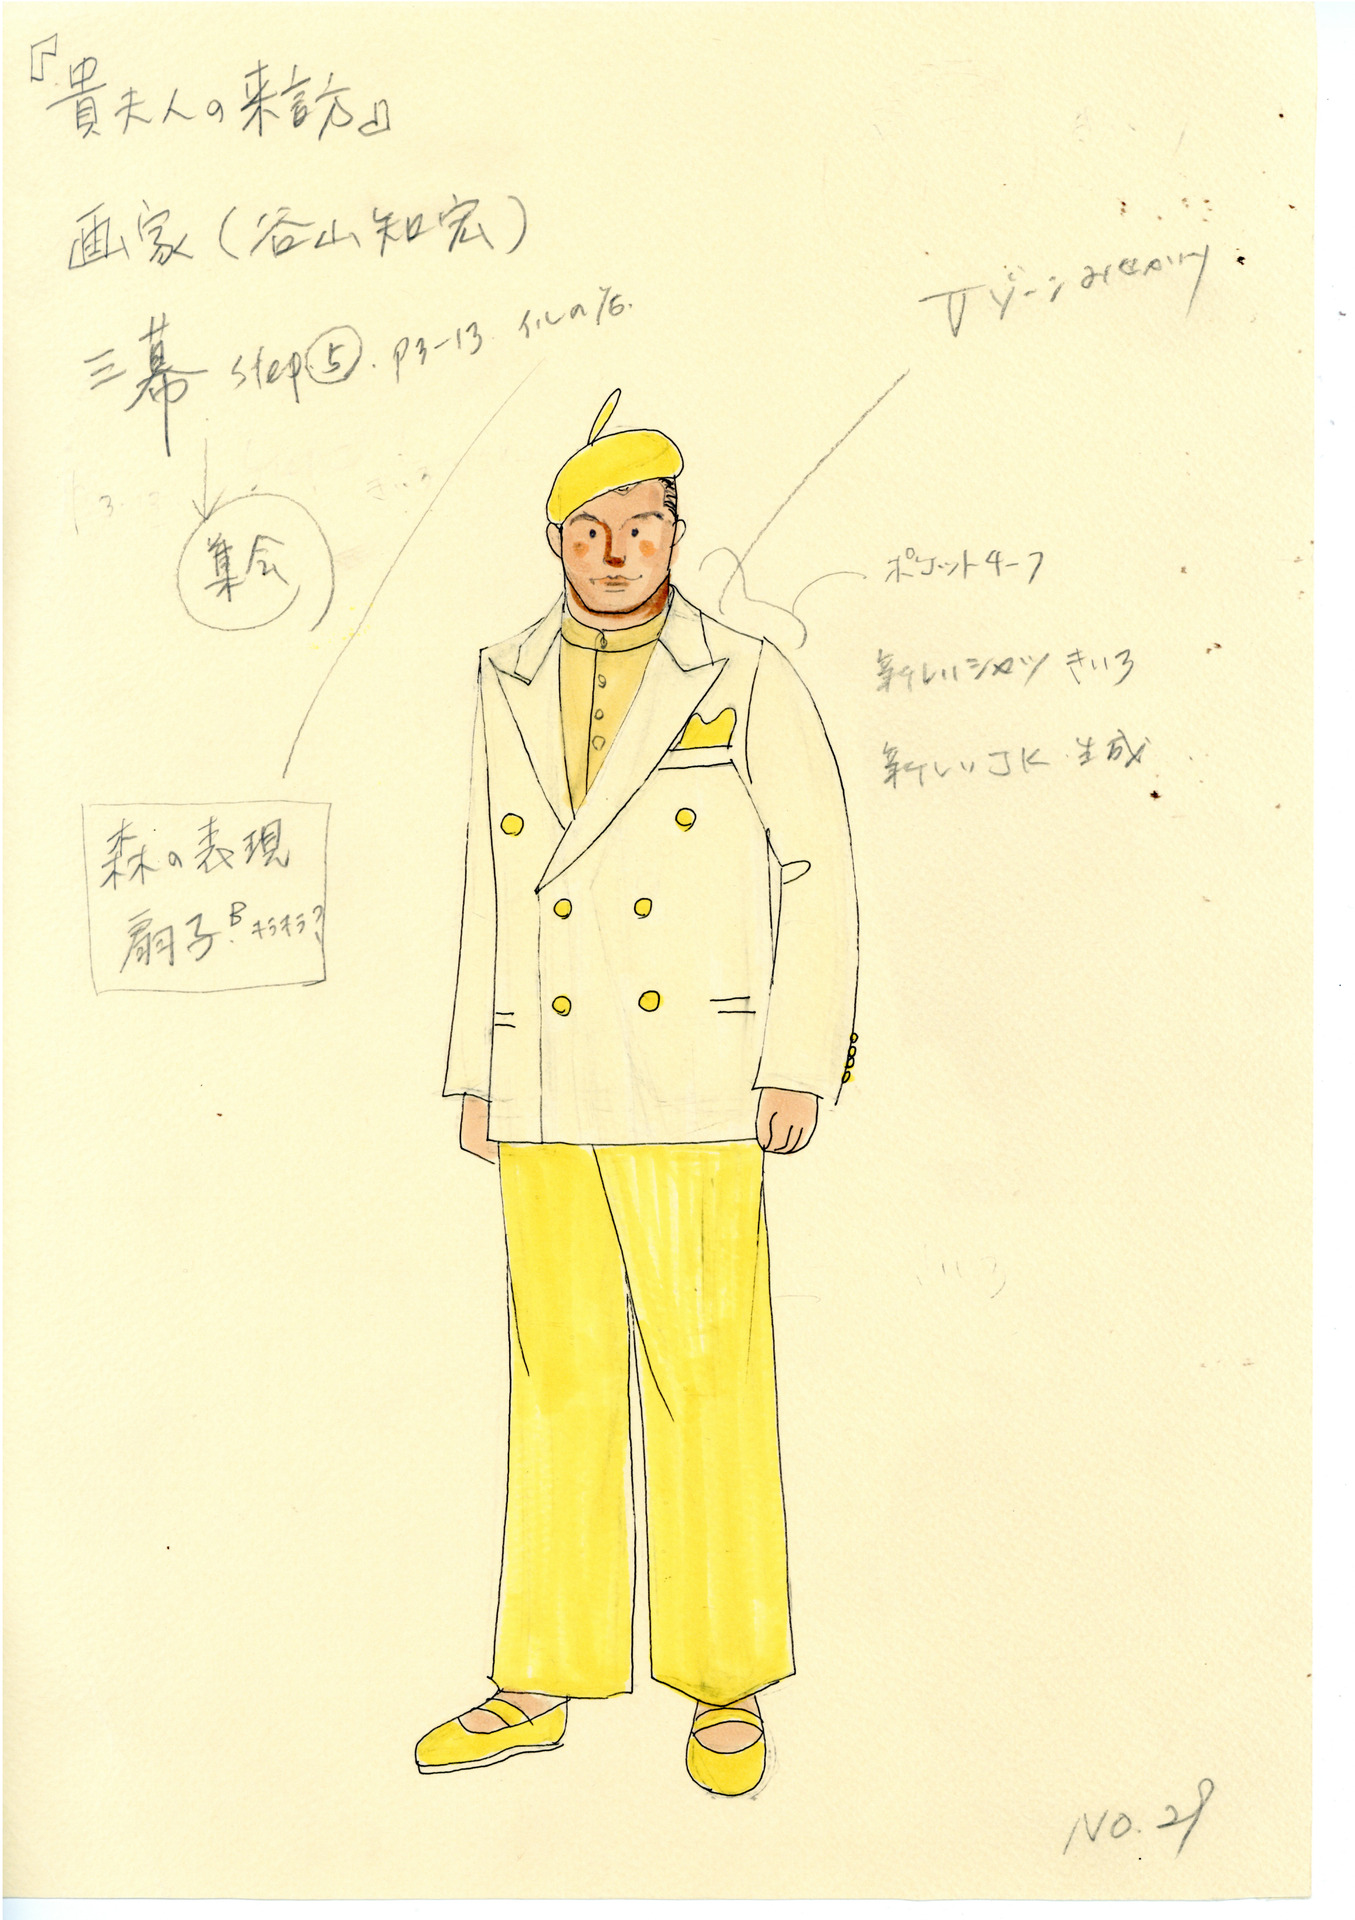 『貴夫人の来訪』
画家(谷山知宏)
三幕 step⑤. P3-13 イルの店.
集会
Vゾーン
ポケットチーフ
新しいシャツ きいろ
新しいJK 生成
森の表現
扇子B. キラキラ?
NO.29